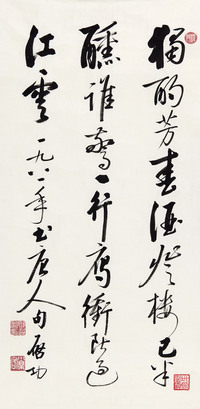 獨酌芳春酒登樓已半
醺誰驚一行雁衝斷過
江雲 一九八一年書唐人句 啟功